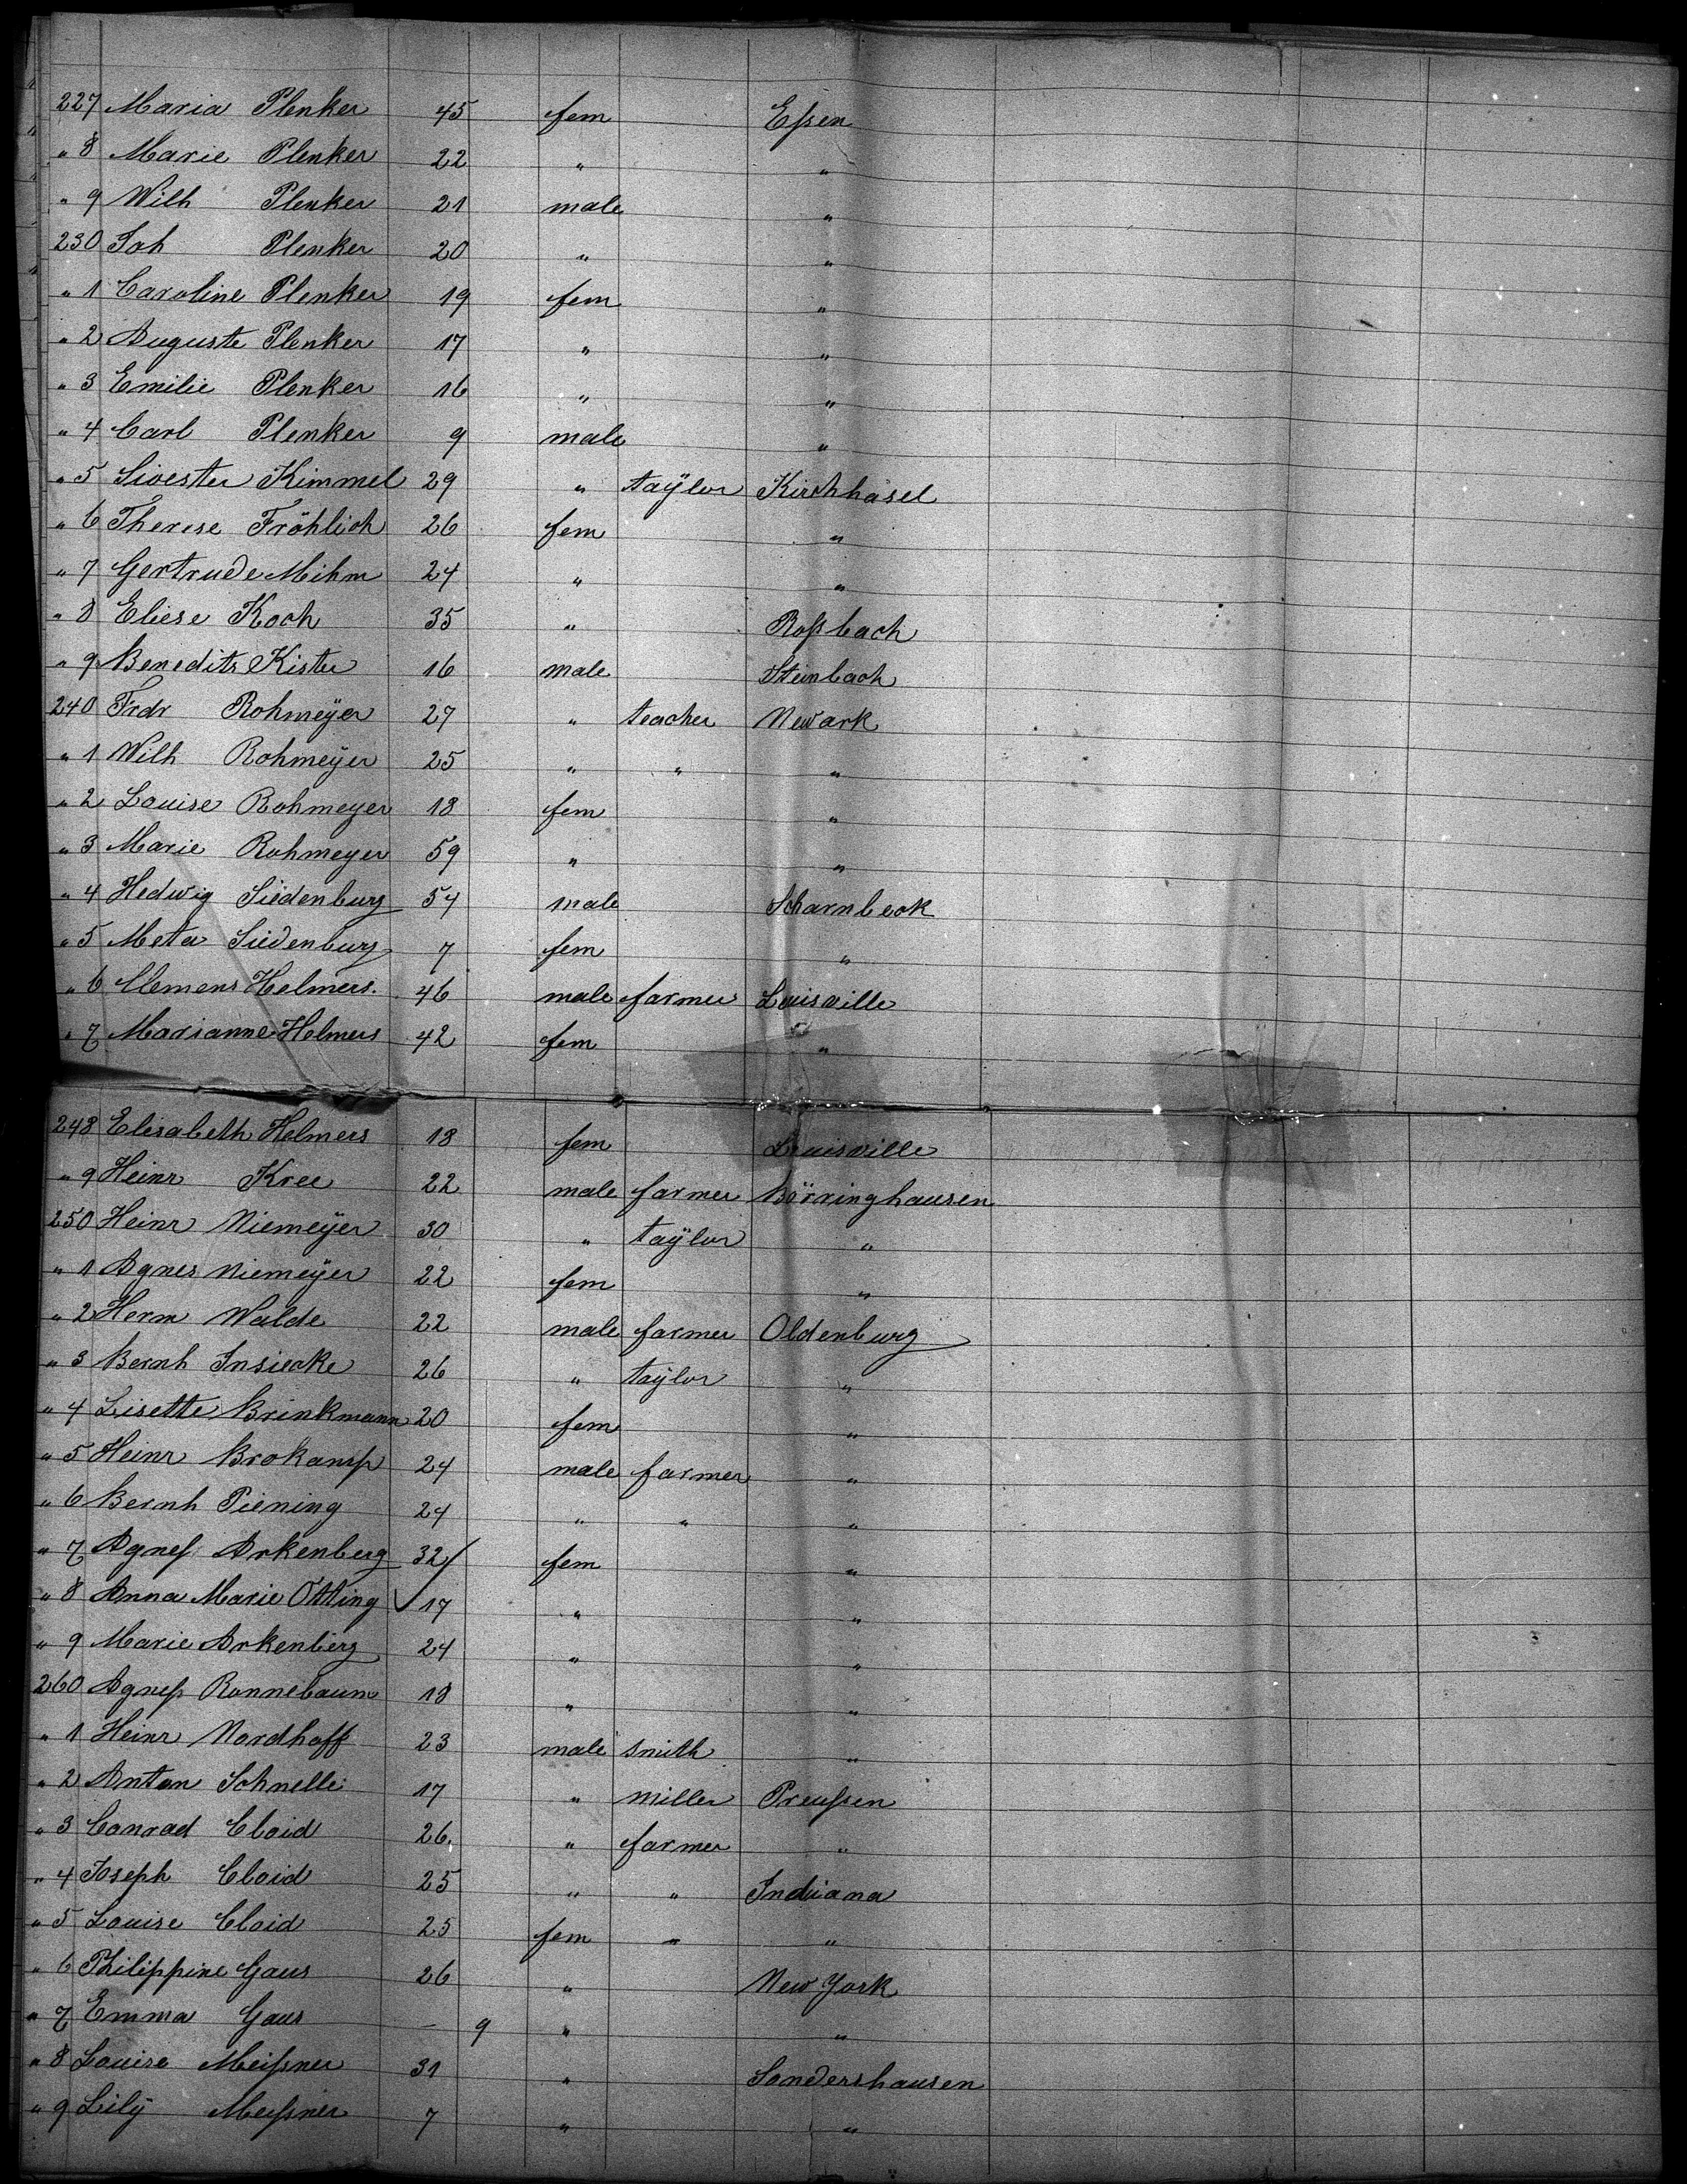 227 Maria Plenker 45 fem Eßen
" 8 Marie Plenker 22 " "
" 9 Wilh Plenker 21 male "
230 Joh Plenker 20 " "
" 1 Caroline Plenker 19 fem "
" 2 Auguste Plenker 17 " "
" 3 Emilie Plenker 16 " "
" 4 Carl Plenker 9 male "
" 5 Sivester Kimmel 29 " taÿlor Kirchhasel
" 6 Therese Fröhlich 26 fem "
" 7 Gertrude Mihm 24 " "
" 8 Eliese Koch 35 " Roßbach
" 9 Benedits Kister 16 male Steinbach
240 Frdr Rohmeÿer 27 " teacher Newark
" 1 Wilh Rohmeÿer 25 " " "
" 2 Louise Rohmeyer 18 fem "
" 3 Marie Rohmeyer 59 " "
" 4 Hedwig Siedenburg 54 male Scharnbeck
" 5 Meta Siedenburg 7 fem "
" 6 Clemens Helmers. 46 male farmer Louisville
" 7 Marianne Helmers 42 fem "
248 Elisabeth Helmers 18 fem Louisville
" 9 Heinr Kree 22 male farmer Börringhausen
250 Heinr Niemeÿer 30 " taÿlor "
" 1 Agnes Niemeÿer 22 fem "
" 2 Herm Walde 22 male farmer Oldenburg
" 3 Bernh Insiecke 26 " taÿlor "
" 4 Lisette Brinkmann 20 fem "
" 5 Heinr Brokamp 24 male farmer "
" 6 Bernh Piening 24 " " "
" 7 Agnes Arkenberg 32 fem "
" 8 Anna Marie Ötting 17 " "
" 9 Marie Arkenberg 24 " "
260 Agneß Ronnebaum 18 " "
" 1 Heinr Nordhoff 23 male smith "
" 2 Anton Schnelle 17 " miller Preußen
" 3 Conrad Cloid 26 " farmer "
" 4 Joseph Cloid 25 " " Indiana
" 5 Louise Cloid 25 fem " "
" 6 Philippine Gaus 26 " New York
" 7 Emma Gaus – 9 " "
" 8 Louise Meißner 31 " Sondershausen
" 9 Lilÿ Meißner 7 " "